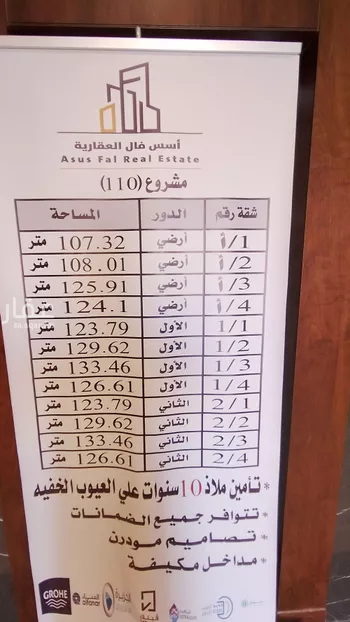 أسس فال العقارية
Asus Fal Real Estate
مشروع (110)
شقة رقم الدور المساحة
أ/1 أرضي 107.32 متر
أ/2 أرضي 108.01 متر
أ/3 أرضي 125.91 متر
أ/4 أرضي 124.1 متر
1/1 الأول 123.79 متر
1/2 الأول 129.62 متر
1/3 الأول 133.46 متر
1/4 الأول 126.61 متر
2/1 الثاني 123.79 متر
2/2 الثاني 129.62 متر
2/3 الثاني 133.46 متر
2/4 الثاني 126.61 متر
* تأمين ملاذ 10 سنوات علي العيوب الخفيه
* تتوافر جميع الضمانات
* تصاميم مودرن
* مداخل مكيفة
GROHE alfanar